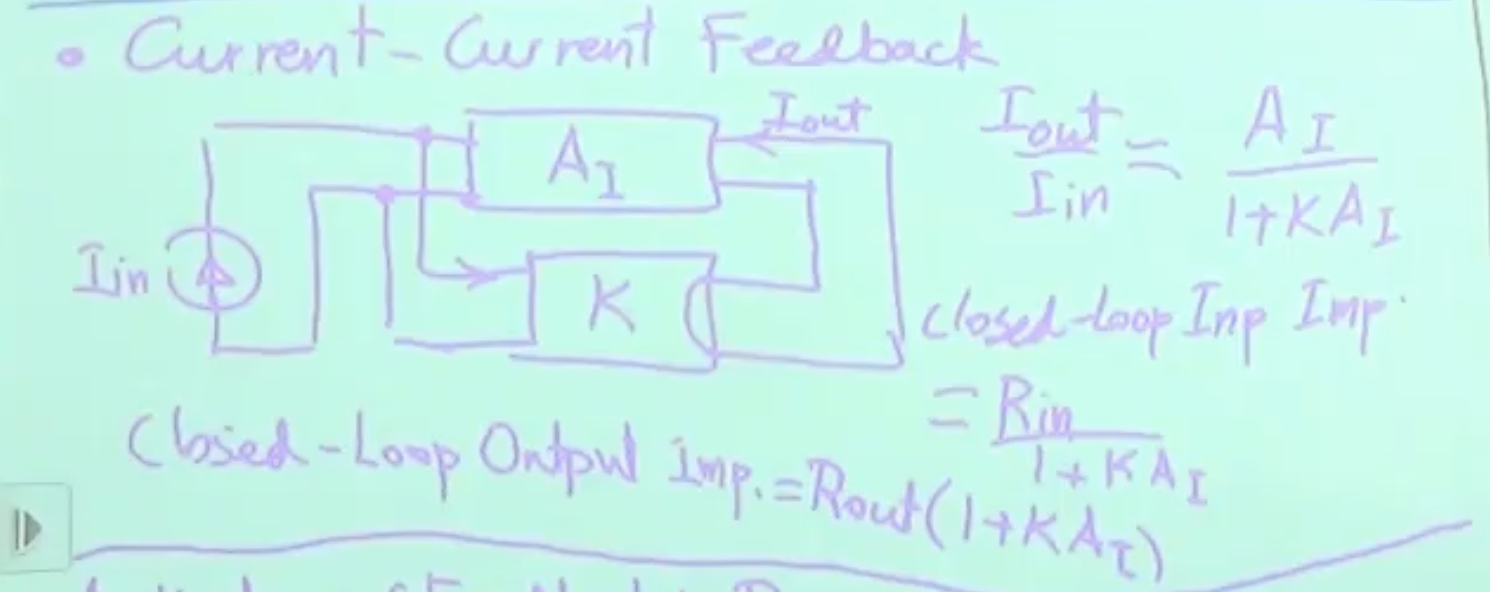 • Current-Current Feedback
Iout
A_I
Iout/Iin = A_I/(1+KA_I)
Iin
K
Closed-Loop Inp Imp.
= Rin/(1+KA_I)
Closed-Loop Output Imp. = Rout(1+KA_I)